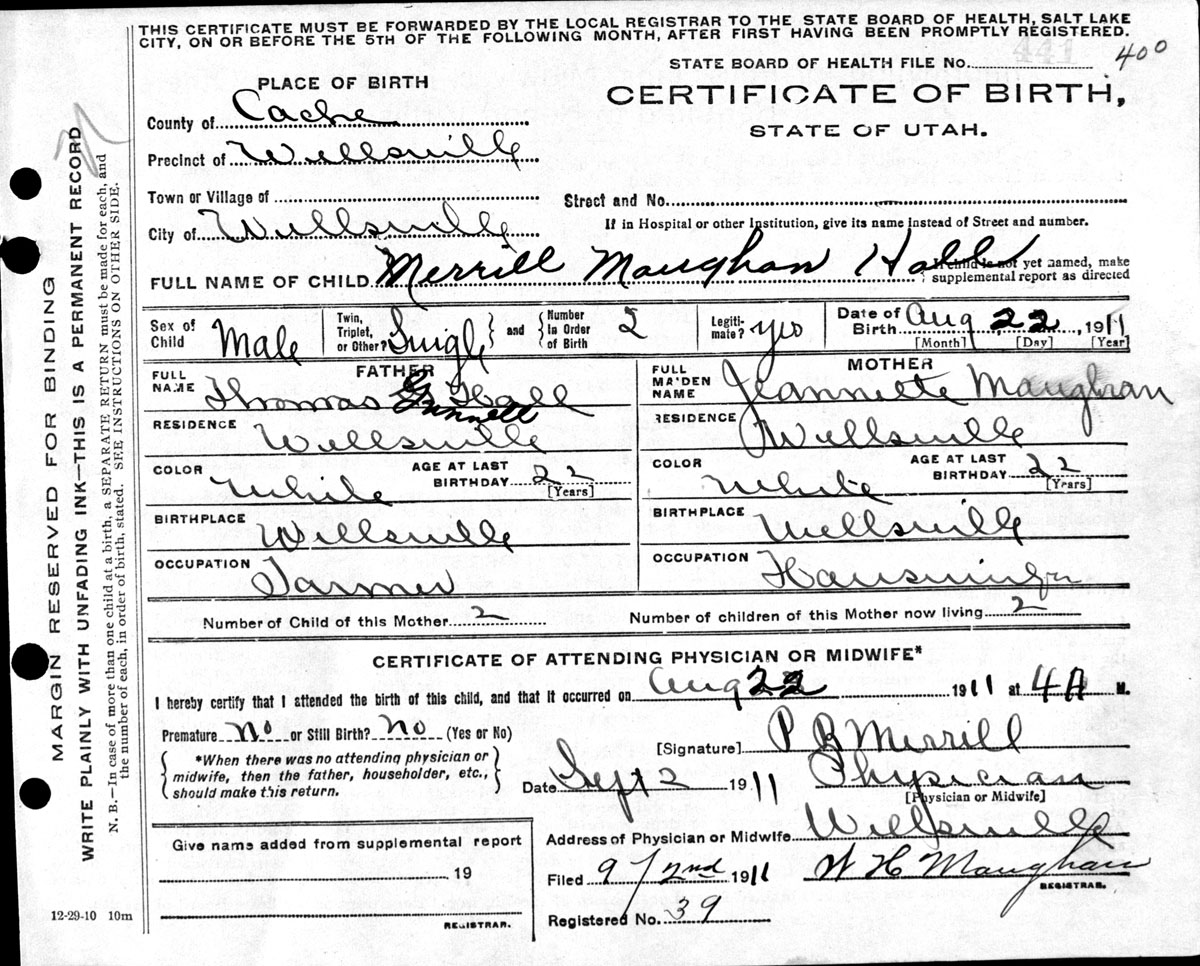 THIS CERTIFICATE MUST BE FORWARDED BY THE LOCAL REGISTRAR TO THE STATE BOARD OF HEALTH, SALT LAKE
CITY, ON OR BEFORE THE 5TH OF THE FOLLOWING MONTH, AFTER FIRST HAVING BEEN PROMPTLY REGISTERED.
441
STATE BOARD OF HEALTH FILE No. 400
PLACE OF BIRTH
CERTIFICATE OF BIRTH,
STATE OF UTAH.
County of Cache
Precinct of Wellsville
Town or Village of
Street and No.
City of Wellsville
If in Hospital or other Institution, give its name instead of Street and number.
FULL NAME OF CHILD Merrill Maughan Hall
If child is not yet named, make
supplemental report as directed
Sex of Child Male
Twin, Triplet, or Other? Singl
and
Number In Order of Birth 2
Legiti-mate? yes
Date of Birth Aug 22, 1911
[Month] [Day] [Year]
FATHER
FULL NAME Thomas Gunnell Hall
RESIDENCE Wellsville
COLOR White
AGE AT LAST BIRTHDAY 22
[Years]
BIRTHPLACE Wellsville
OCCUPATION Farmer
MOTHER
FULL MAIDEN NAME Jeannette Maughan
RESIDENCE Wellsville
COLOR White
AGE AT LAST BIRTHDAY 22
[Years]
BIRTHPLACE Wellsville
OCCUPATION
Number of Child of this Mother 2
Number of children of this Mother now living 2
CERTIFICATE OF ATTENDING PHYSICIAN OR MIDWIFE*
I hereby certify that I attended the birth of this child, and that it occurred on Aug 22 1911 at 4 A M.
Premature No or Still Birth? No (Yes or No)
*When there was no attending physician or
midwife, then the father, householder, etc.,
should make this return.
[Signature] P B Merrill
Date Sept 2 1911
Physician
[Physician or Midwife]
Address of Physician or Midwife Wellsville
Filed 9/2nd 1911
W H Maughan
REGISTRAR.
Registered No. 39
Give name added from supplemental report
19
REGISTRAR.
12-29-10 10m
MARGIN RESERVED FOR BINDING
WRITE PLAINLY WITH UNFADING INK—THIS IS A PERMANENT RECORD
N. B.—In case of more than one child at a birth, a SEPARATE RETURN must be made for each, and
the number of each, in order of birth, stated. SEE INSTRUCTIONS ON OTHER SIDE.